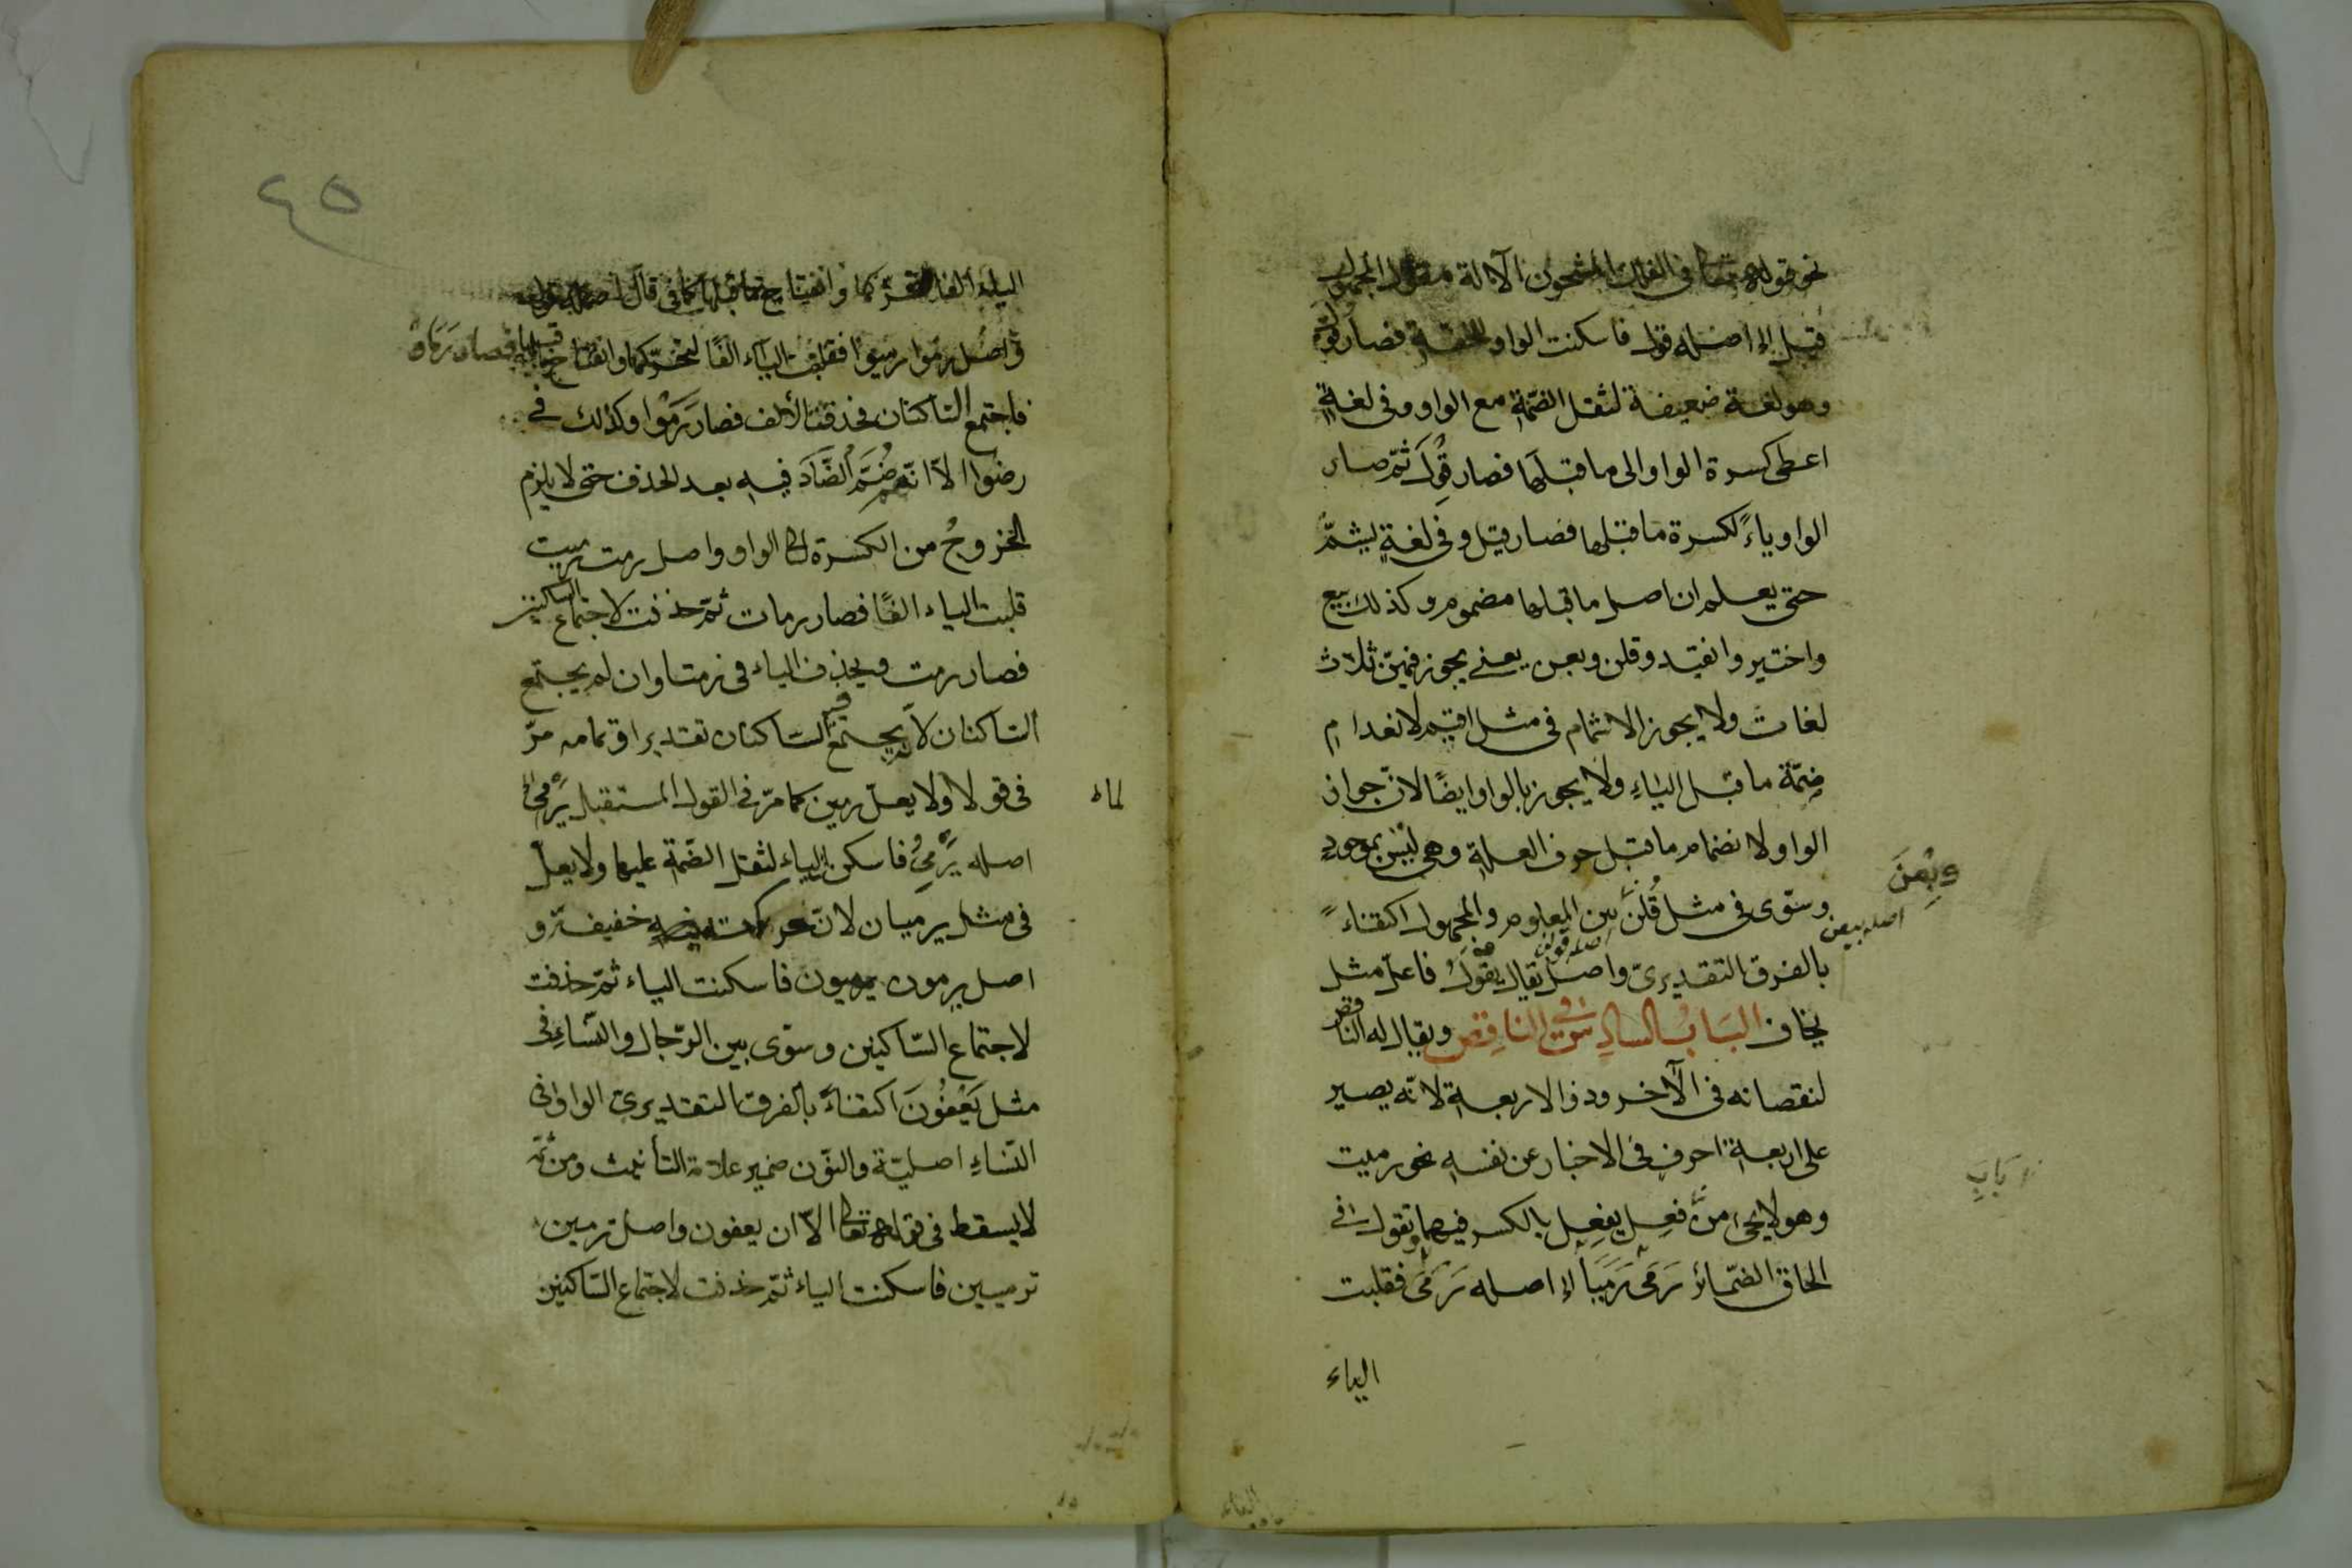 نحو قوله تعالى فى الفلك المشحون الآلة مقول المجهول
قيل إلخ اصله قول فاسكنت الواو للخفة فصار قول
وهو لغة ضعيفة لثقل الضمّة مع الواو وفى لغةٍ
اعطى كسرة الواو الى ما قبلَها فصار قِوْلَ ثمّ صار
الواو ياءً لكسرة ما قبلها فصار قيل وفى لغةٍ يشمّ
حتى يعلم ان اصل ما قبلها مضموم وكذلك بيع
واختير وانقيد وقلن وبعن يعنى يجوز فيهنّ ثلاث
لغات ولا يجوز الاشمام فى مثل اقيم لانعدام
ضمّة ما قبل الياءِ ولا يجوز بالواو ايضًا لانّ جواز
الواو لانضمام ما قبل حرف العلة وهى ليس بموجودٍ
وسوّى فى مثل قُلنَ بين المعلوم والمجهول اكتفاءً
وبِعْنَ
اصله بيعن
بالفرق التقديرىّ واصل يقال يقول فاعلّ مثل
يخاف البَابُ السادِس فى الناقِص ويقال له الناقص
لنقصانه فى الآخر وذو الاربعة لانّه يصير
على اربعة احرفٍ فى الاخبار عن نفسهِ نحو رميت
باب
وهو لا يجىء من فعِل يفعِل بالكسر فيهما وتقول فى
الحاق الضمائر رَمَى رَمَيَا إلخ اصله رَمَىَ فقلبت
الياء
٤٥
الياء الفا لتحرّكها وانفتاح ما قبلها كما فى قال
واصل رموا رميوا فقلبت الياء الفًا لتحرّكها وانفتاح ما قبلها فصار رَمَاوْ
فاجتمع الساكنان فحذفت الألف فصار رَمَوْا وكذلك فى
رضوا الاّ انّه ضُمَّ الضَّادَ فيه بعد الحذف حتى لا يلزم
الخروجُ من الكسرة الى الواو واصل رمت رميت
قلبت الياء الفًا فصار رمات ثمّ حذفت لاجتماع الساكنين
فصار رمت ويحذف الياء فى رمتا وان لم يجتمع
الساكنان لانّه يجتمع الساكنان تقديرا وتمامه مرّ
فى قولا ولا يعلّ رمين كما مرّ فى القول المستقبل يَرْمِى إلخ
لماء
اصله يَرْمِىُ فاسكن الياء لثقل الضمّة عليها ولا يعلّ
فى مثل يرميان لانّ حركته خفيفة و
اصل يرمون يرميون فاسكنت الياء ثمّ حذفت
لاجتماع السّاكنين وسوّى بين الرّجال والنّساءِ فى
مثل يَعْفُونَ اكتفاءً بالفرق التقديرىّ الواو فى
النّساءِ اصليّة والنّون ضمير علامة التأنيث ومن ثمّة
لا يسقط فى قوله تعالى الاّ ان يعفون واصل ترمين
ترميين فاسكنت الياء ثمّ حذفت لاجتماع السّاكنين